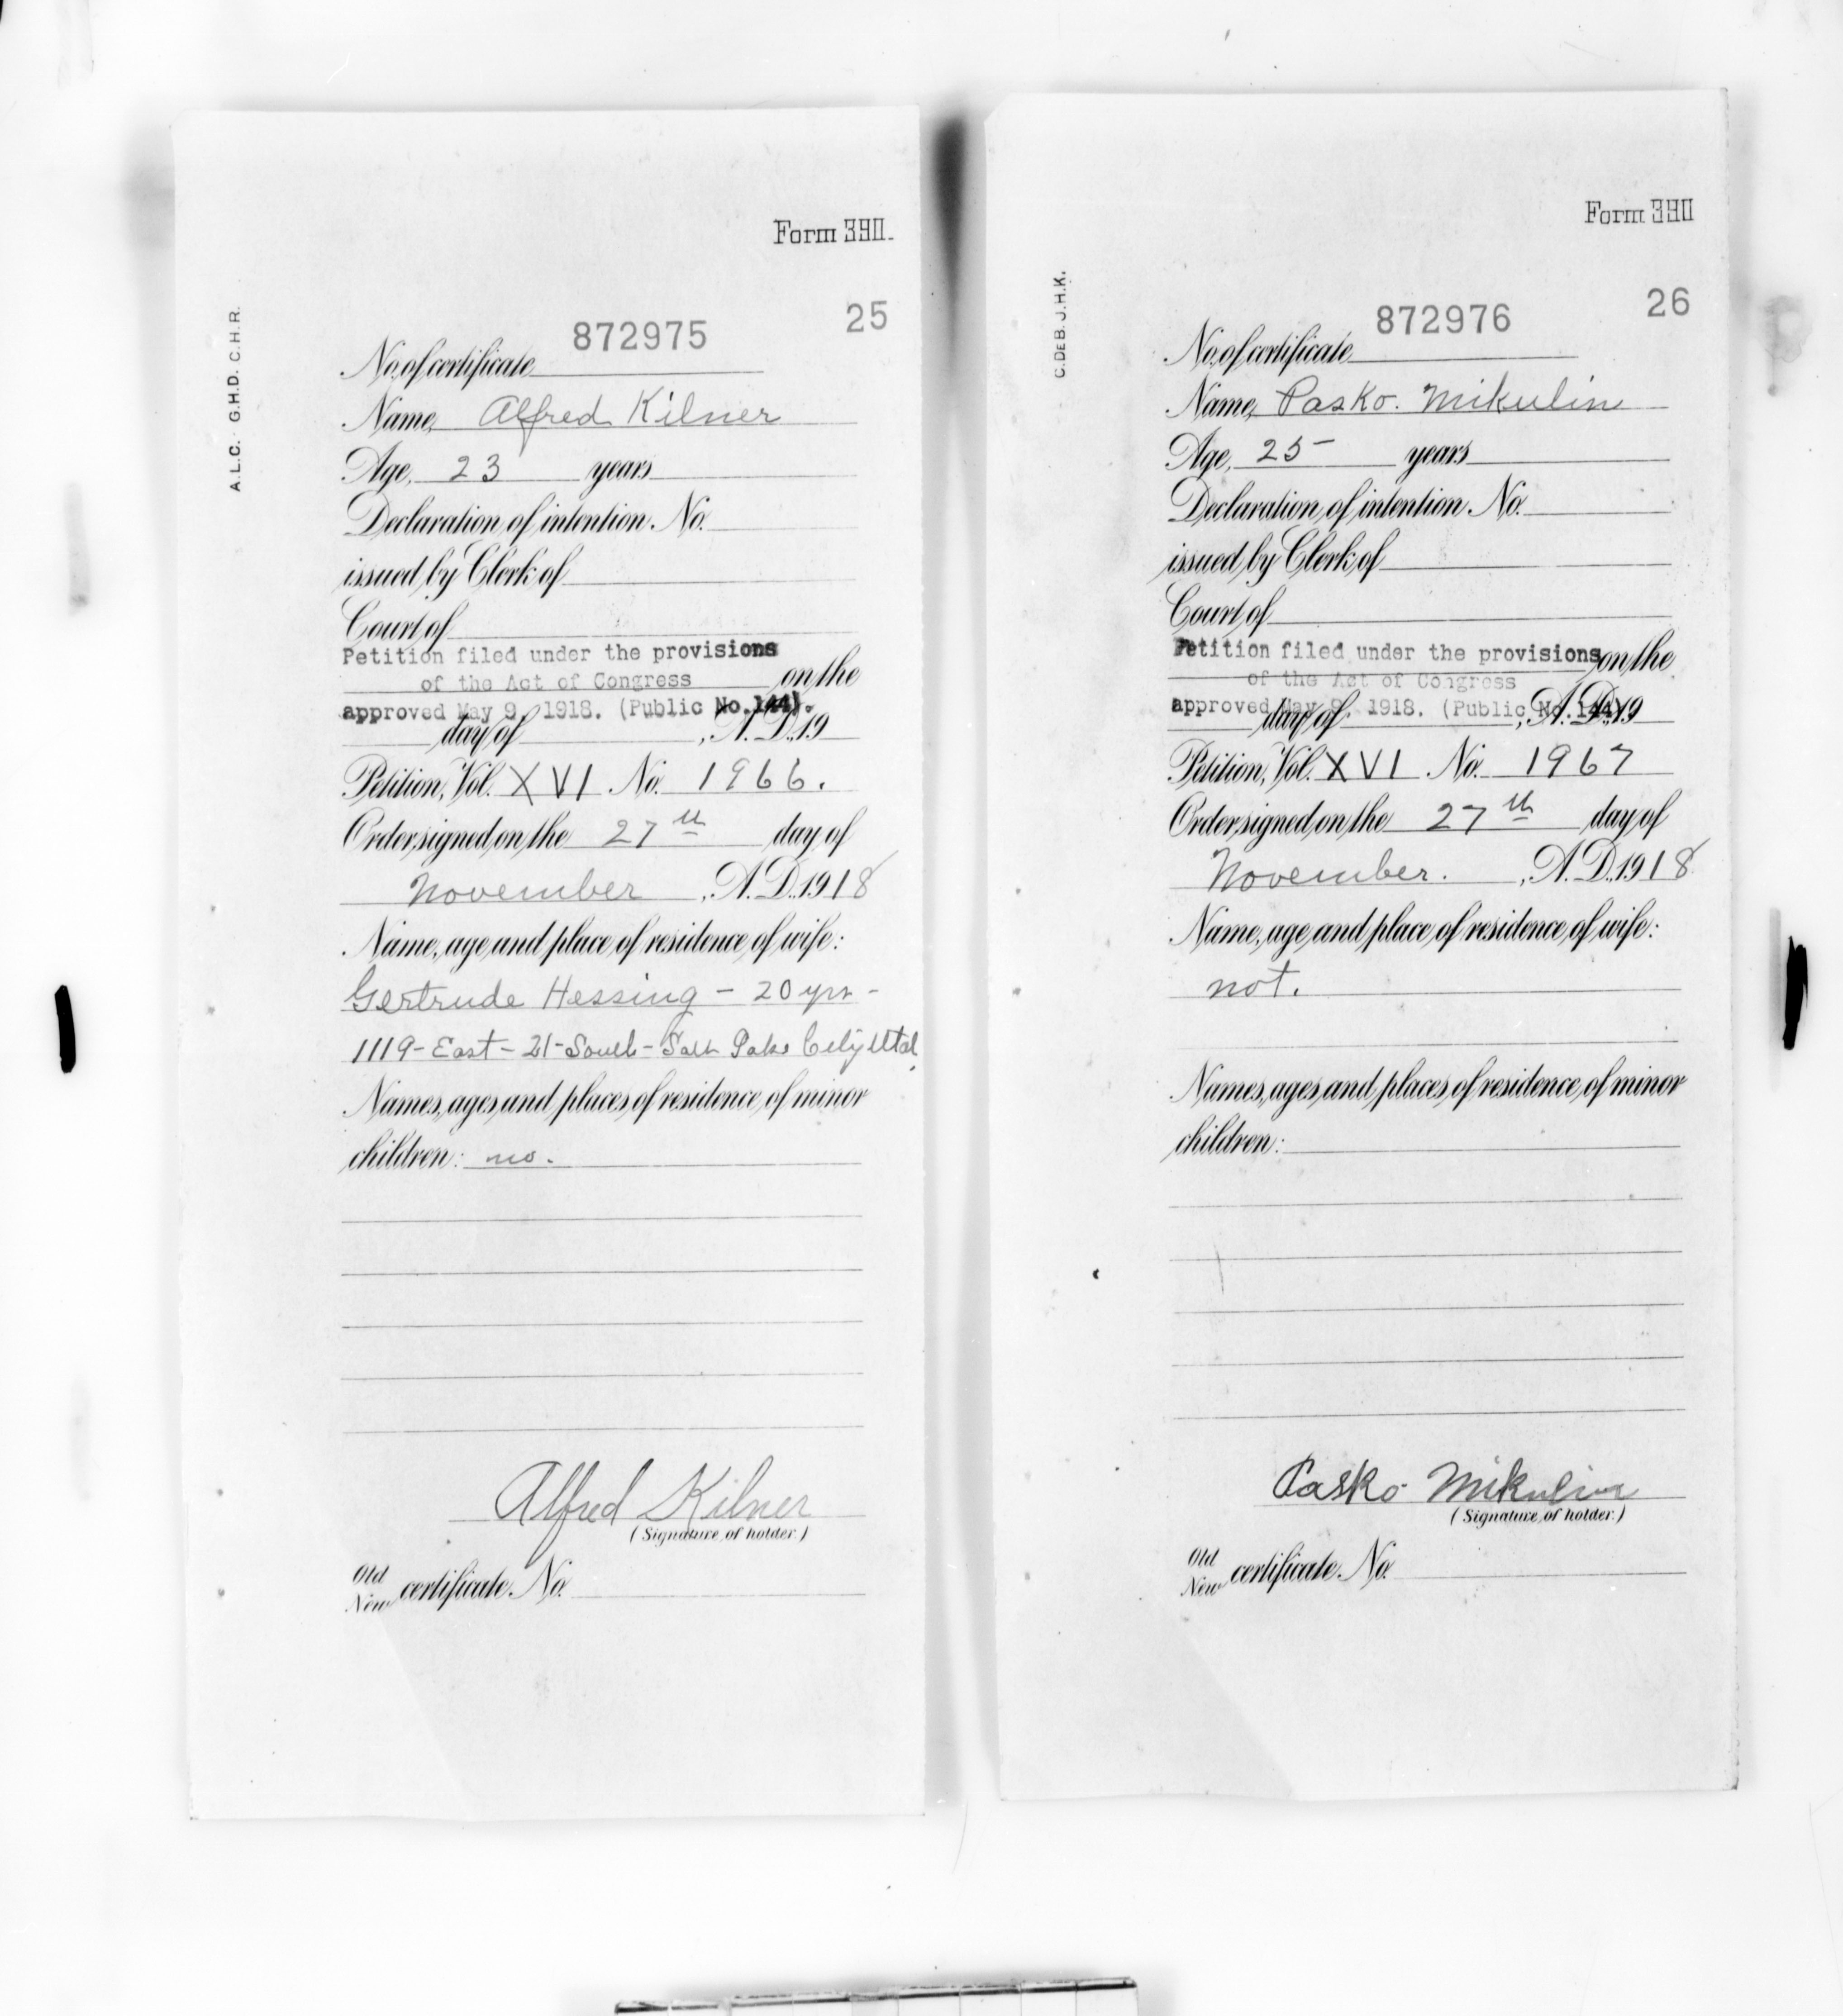 Form 330.
25
A.L.C. G.H.D. C.H.R.
872975
No. of certificate
Name, Alfred Kilner
Age, 23 years
Declaration of intention No.
issued by Clerk of
Court of
Petition filed under the provisions
of the Act of Congress on the
approved May 9, 1918. (Public No. 144).
day of , A.D. 19
Petition, Vol. XVI No. 1966.
Order signed on the 27th day of
November , A.D. 1918
Name, age and place of residence of wife:
Gertrude Hessing - 20 yrs -
1119 - East - 21 - South - Salt Lake City Utah
Names, ages and places of residence of minor
children: no.
Alfred Kilner
(Signature of holder)
Old
New certificate No.
Form 330
26
C.DEB. J.H.K.
872976
No. of certificate
Name, Pasko. Mikulin
Age, 25 years
Declaration of intention No.
issued by Clerk of
Court of
Petition filed under the provisions on the
of the Act of Congress
approved May 9, 1918. (Public No. 144).
day of , A.D. 19
Petition, Vol. XVI No. 1967
Order signed on the 27th day of
November. , A.D. 1918
Name, age and place of residence of wife:
not.
Names, ages and places of residence of minor
children:
Pasko Mikulin
(Signature of holder)
Old
New certificate No.